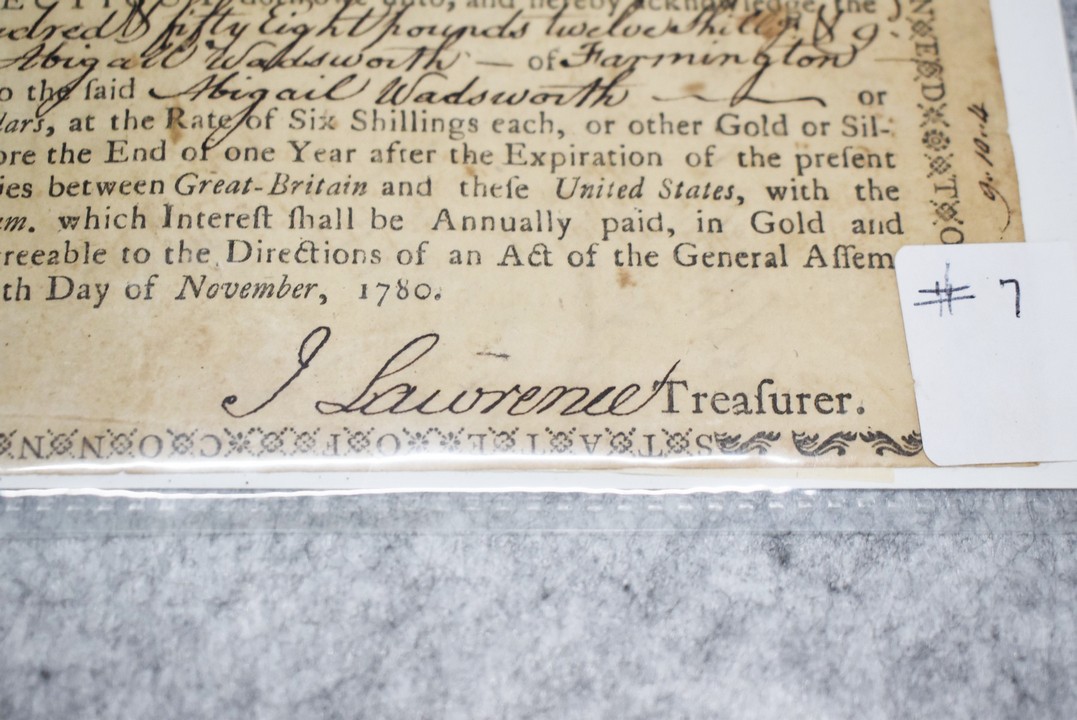 and hereby acknowledge the
fifty Eight pounds twelve Shills & 9
Abigail Wadsworth — of Farmington
o the ſaid Abigail Wadsworth or
lars, at the Rate of Six Shillings each, or other Gold or Sil-
ore the End of one Year after the Expiration of the preſent
ies between Great-Britain and theſe United States, with the
m. which Intereſt ſhall be Annually paid, in Gold and
reeable to the Directions of an Act of the General Aſſem
th Day of November, 1780.
J Lawrence Treaſurer.
STATE OF CONN
# 7